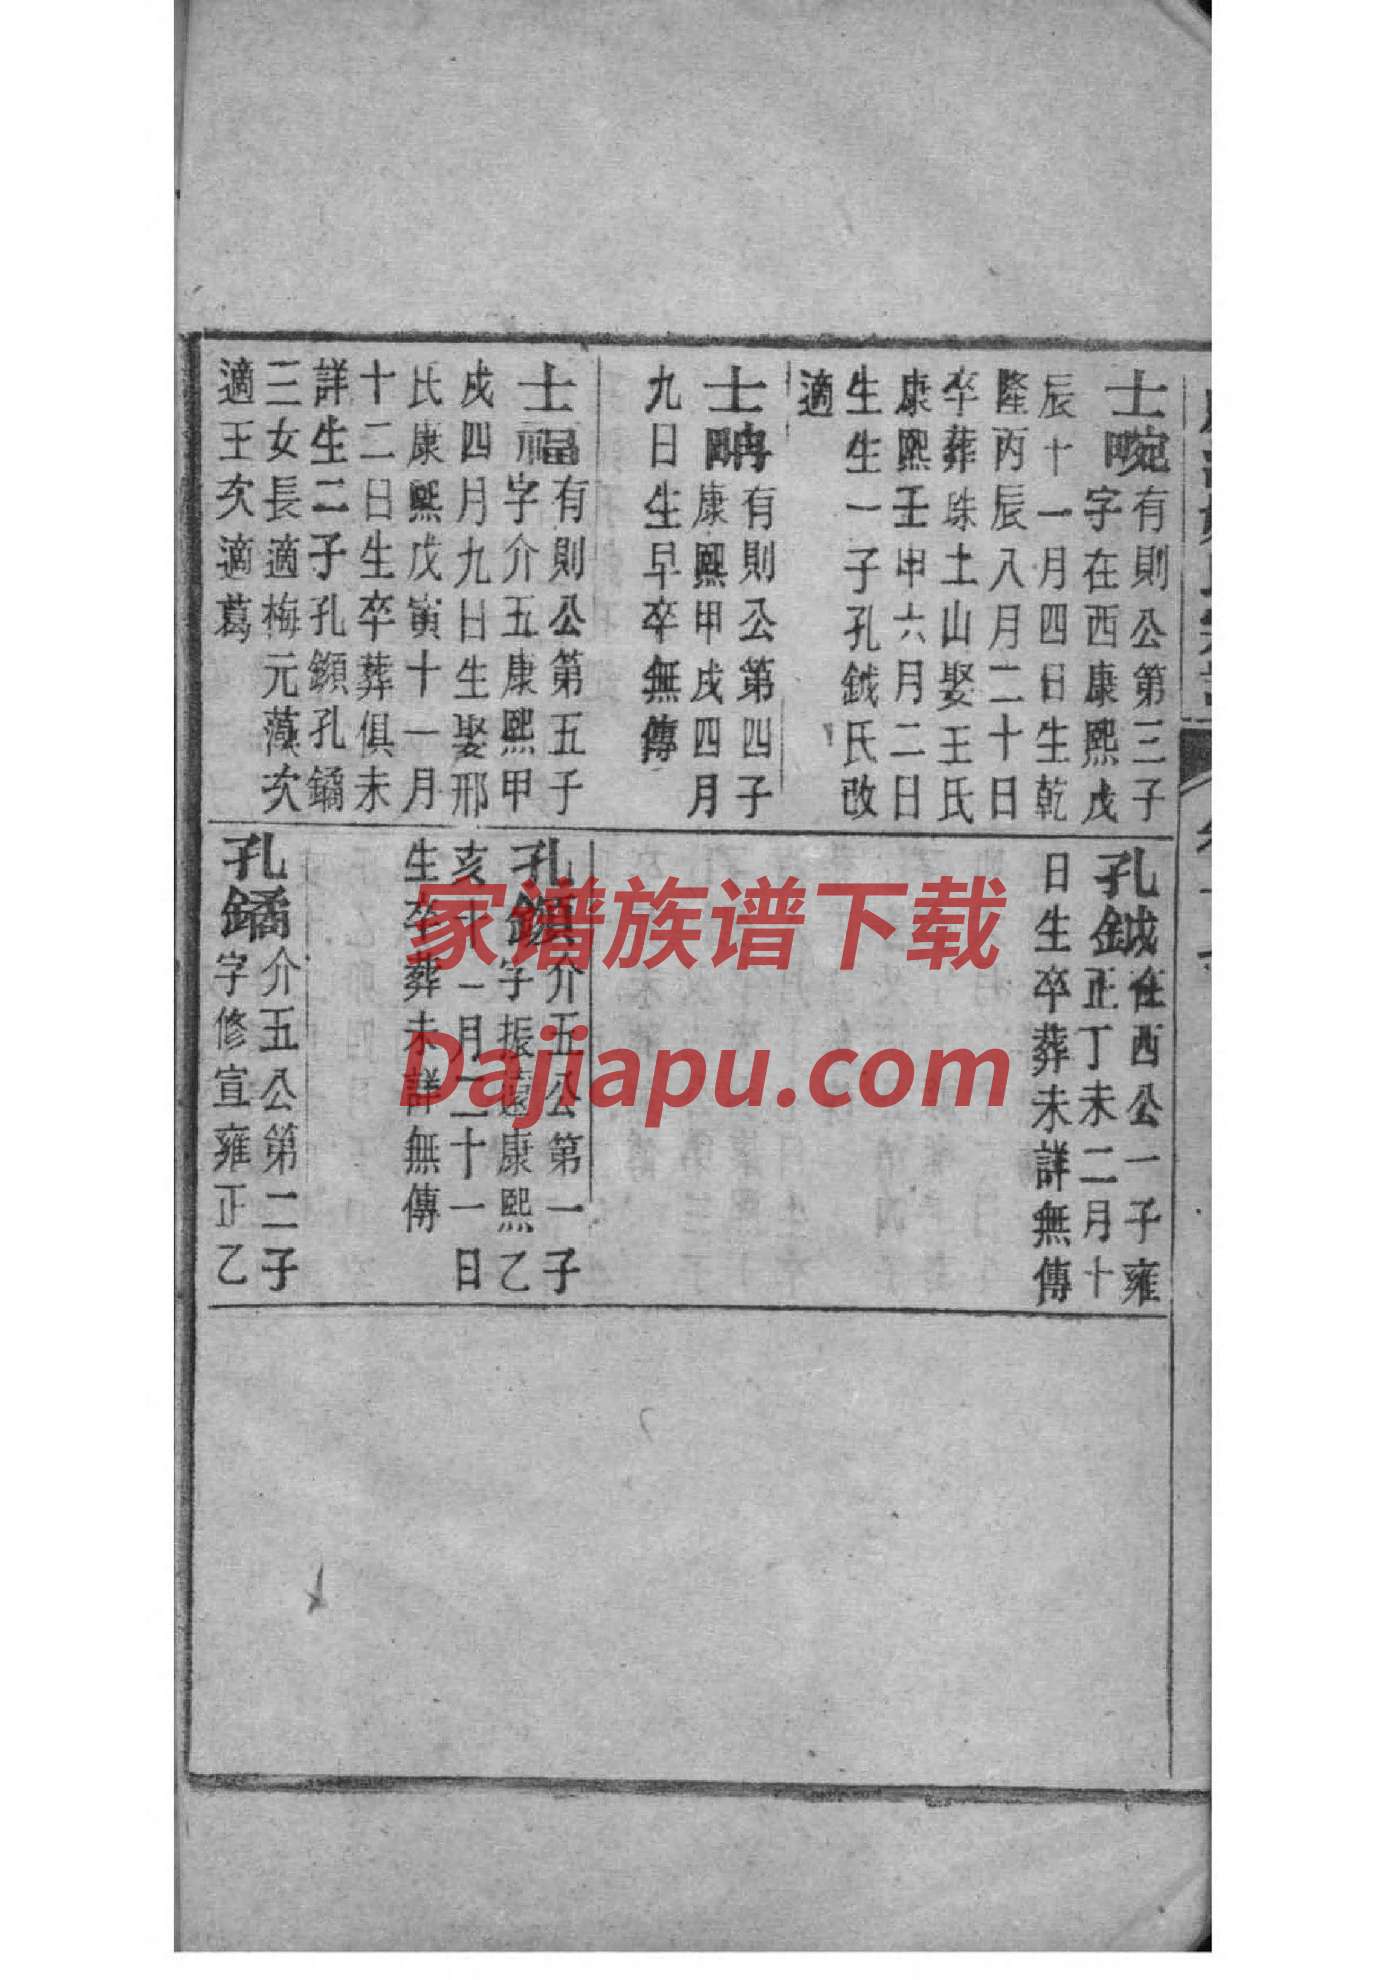 士畹有則公第三子
字在西康熙戊
辰十一月四日生乾
隆丙辰八月二十日
卒葬珠土山娶王氏
康熙壬申六月二日
生生一子孔鉞氏改
適
士𤱶有則公第四子
康熙甲戌四月
九日生早卒無傳
士福有則公第五子
字介五康熙甲
戌四月九日生娶邢
氏康熙戊寅十一月
十二日生卒葬俱未
詳生二子孔鐼孔鐍
三女長適梅元藻次
適王次適葛
孔鉞在西公一子雍
正丁未二月十
日生卒葬未詳無傳
介五公第一子
字振遠康熙乙
亥十一月二十一日
生卒葬未詳無傳
孔鐍介五公第二子
字修宣雍正乙
家谱族谱下载
Dajiapu.com